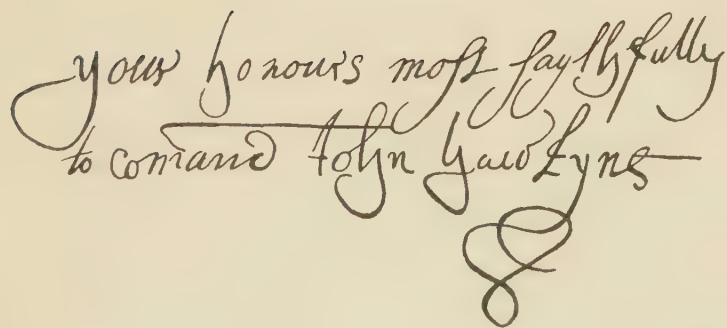 your honours most faythfully
to comand John Hawkyns